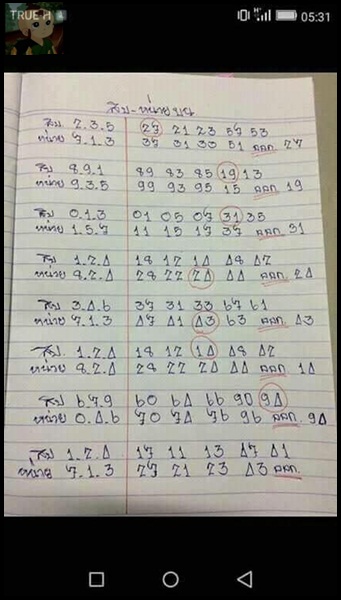 TRUE H 05:31
สิบ-หน่วยบน
สิบ 2.3.5 27 21 23 57 53
หน่วย 7.1.3 37 31 33 51 ออก 27
สิบ 8.9.1 89 83 85 19 13
หน่วย 9.3.5 99 93 95 15 ออก 19
สิบ 0.1.3 01 05 07 31 35
หน่วย 1.5.7 11 15 17 37 ออก 31
สิบ 1.2.4 18 12 14 48 42
หน่วย 8.2.4 28 22 24 44 ออก 24
สิบ 3.4.6 37 31 33 67 61
หน่วย 7.1.3 47 41 43 63 ออก 43
สิบ 1.2.4 18 12 14 48 42
หน่วย 8.2.4 28 22 24 44 ออก 14
สิบ 6.7.9 60 64 66 90 94
หน่วย 0.4.6 70 74 76 96 ออก 94
สิบ 1.2.4 17 11 13 47 41
หน่วย 7.1.3 27 21 23 43 ออก